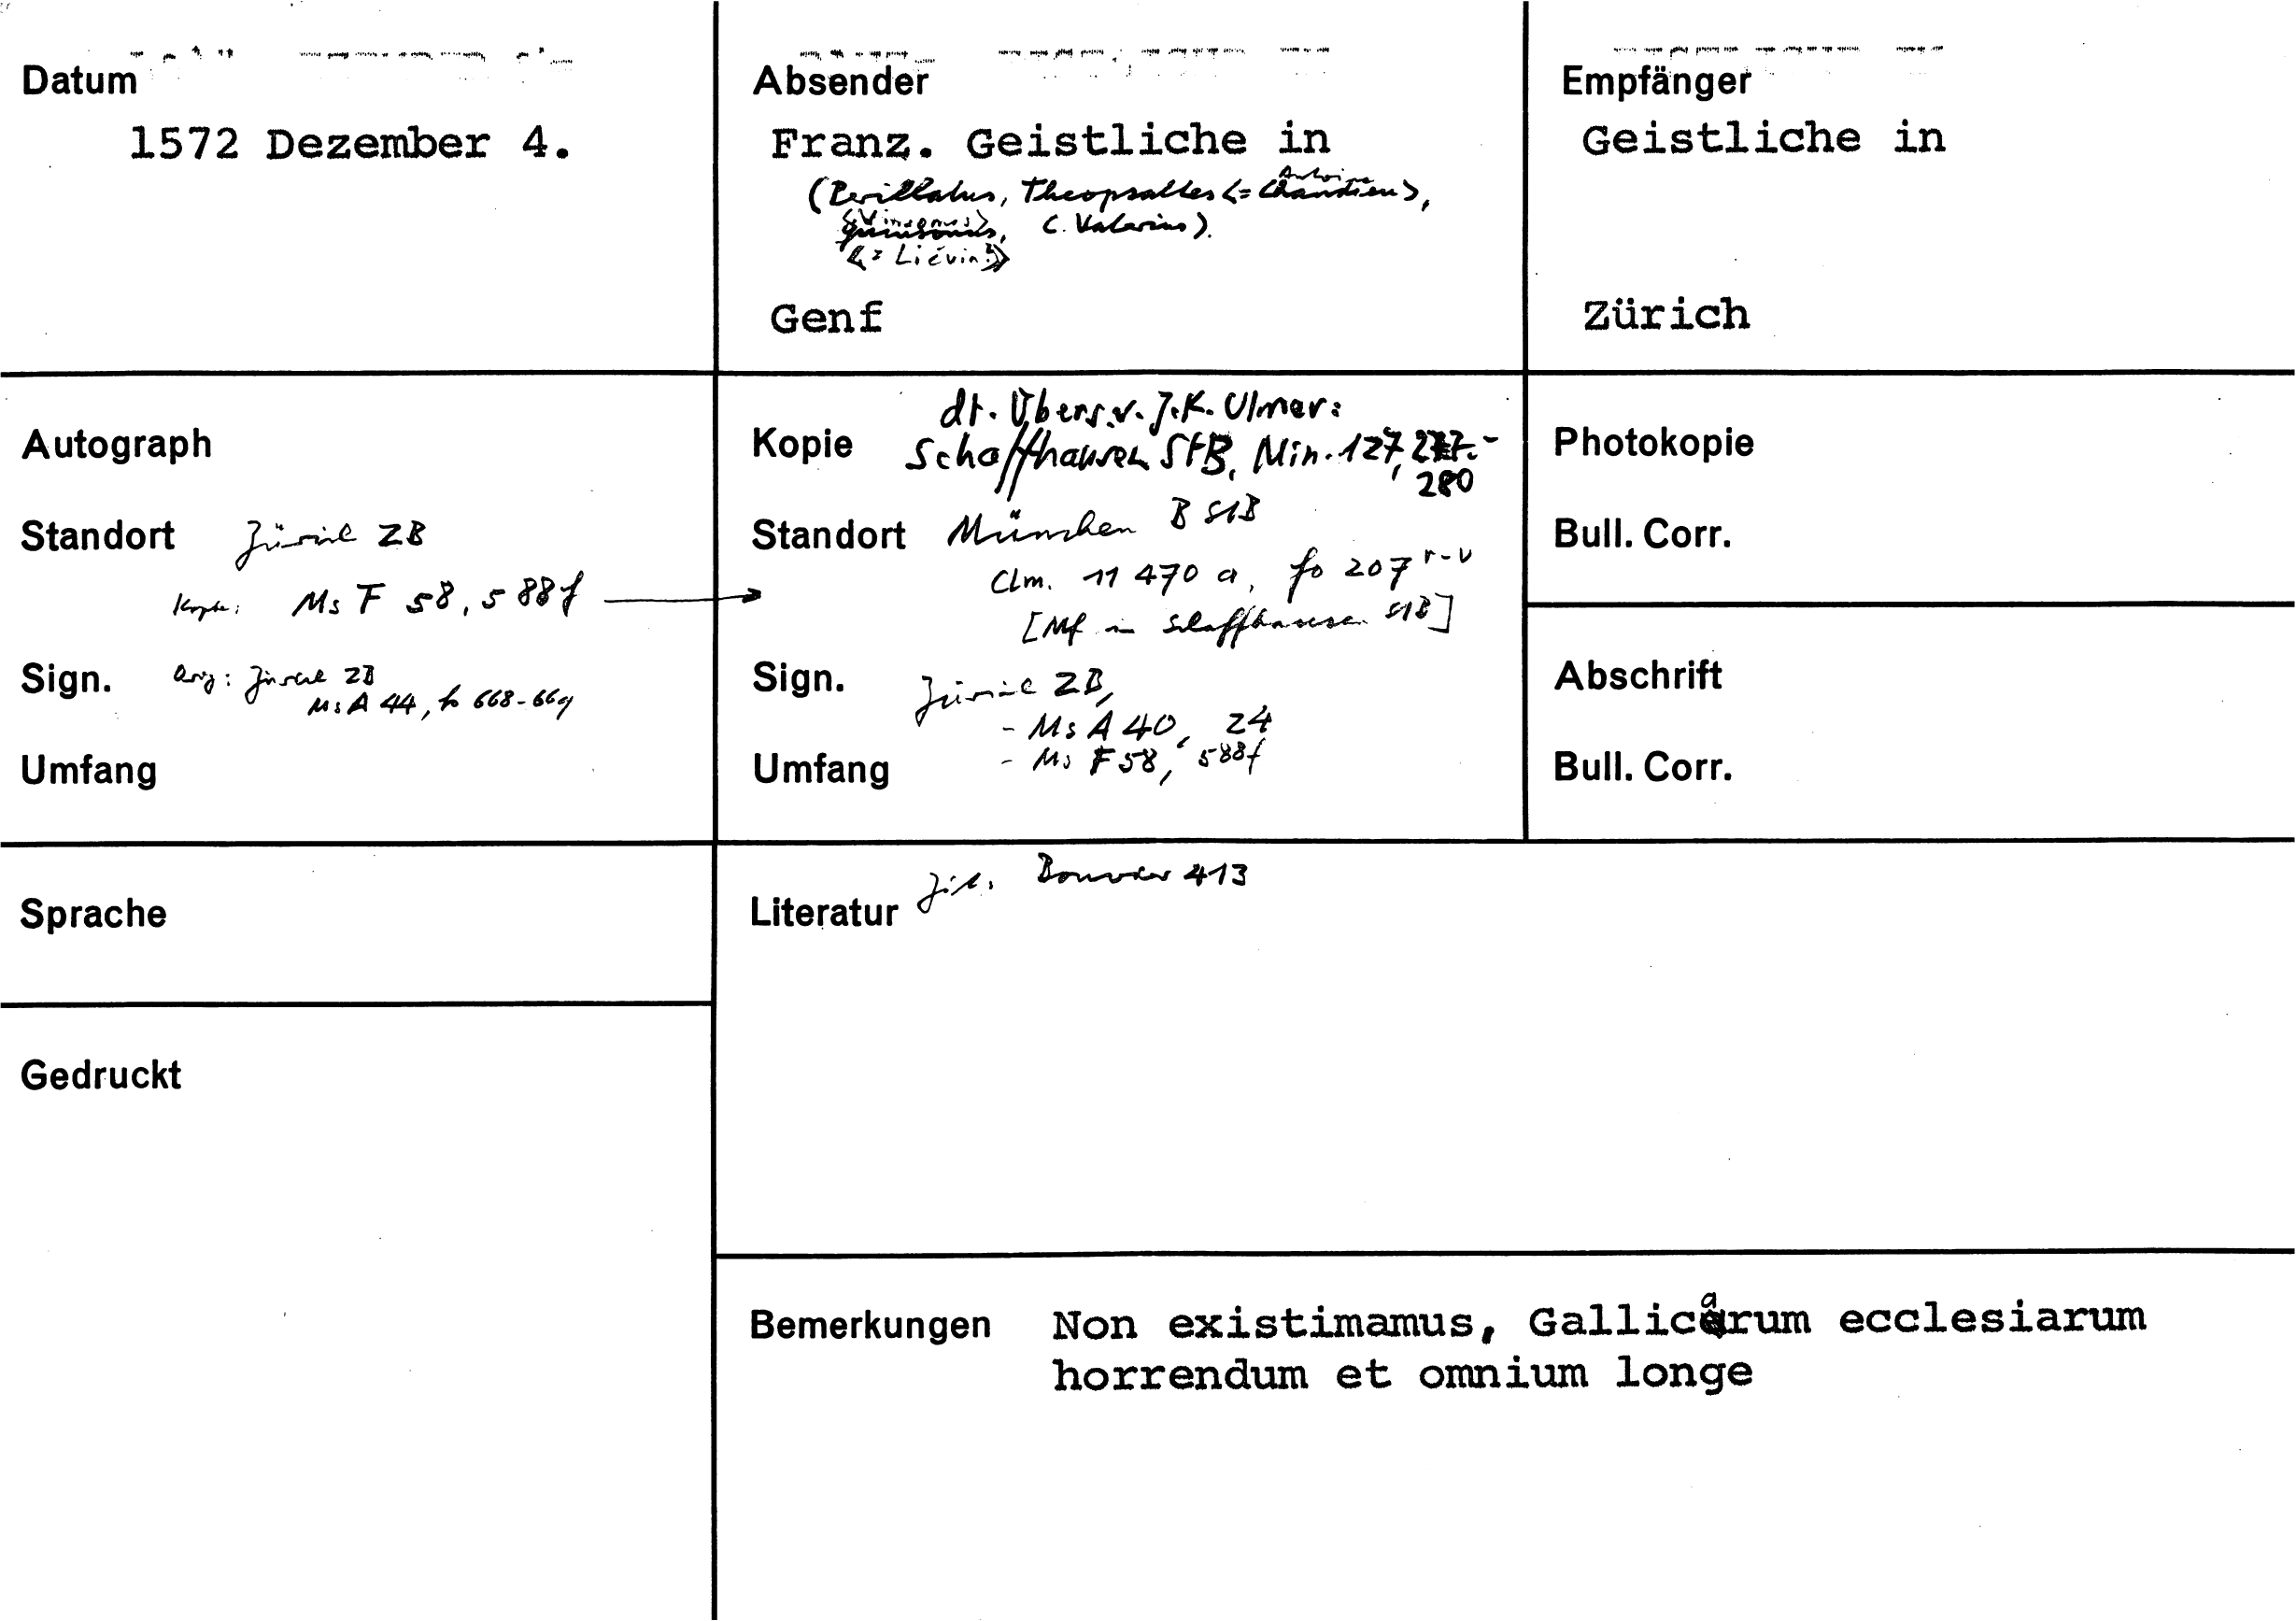 Datum
1572 Dezember 4.
Absender
Franz. Geistliche in
(Perillatus, Theopsaltes <= Antoine Chandieu>,
<Vinsonus>
C. Valerius).
<= Liévin?>
Genf
Empfänger
Geistliche in
Zürich
Autograph
Standort Zürich ZB
Kopie: Ms F 58, 588f
Sign. Orig: Zürich ZB
Ms A 44, fo 668-669
Umfang
dt. Übers. v. J.K. Ulmer:
Kopie Schaffhausen StB, Min. 127, 277.-
280
Standort München B StB
Clm. 11 470 a, fo 207 r-v
[Mf in Schaffhausen StB]
Sign. Zürich ZB,
- Ms A 40, 24
- Ms F 58, 588f
Umfang
Photokopie
Bull. Corr.
Abschrift
Bull. Corr.
Sprache
Gedruckt
Literatur Zit. Bouvier 413
Bemerkungen Non existimamus, Gallicarum ecclesiarum
horrendum et omnium longe